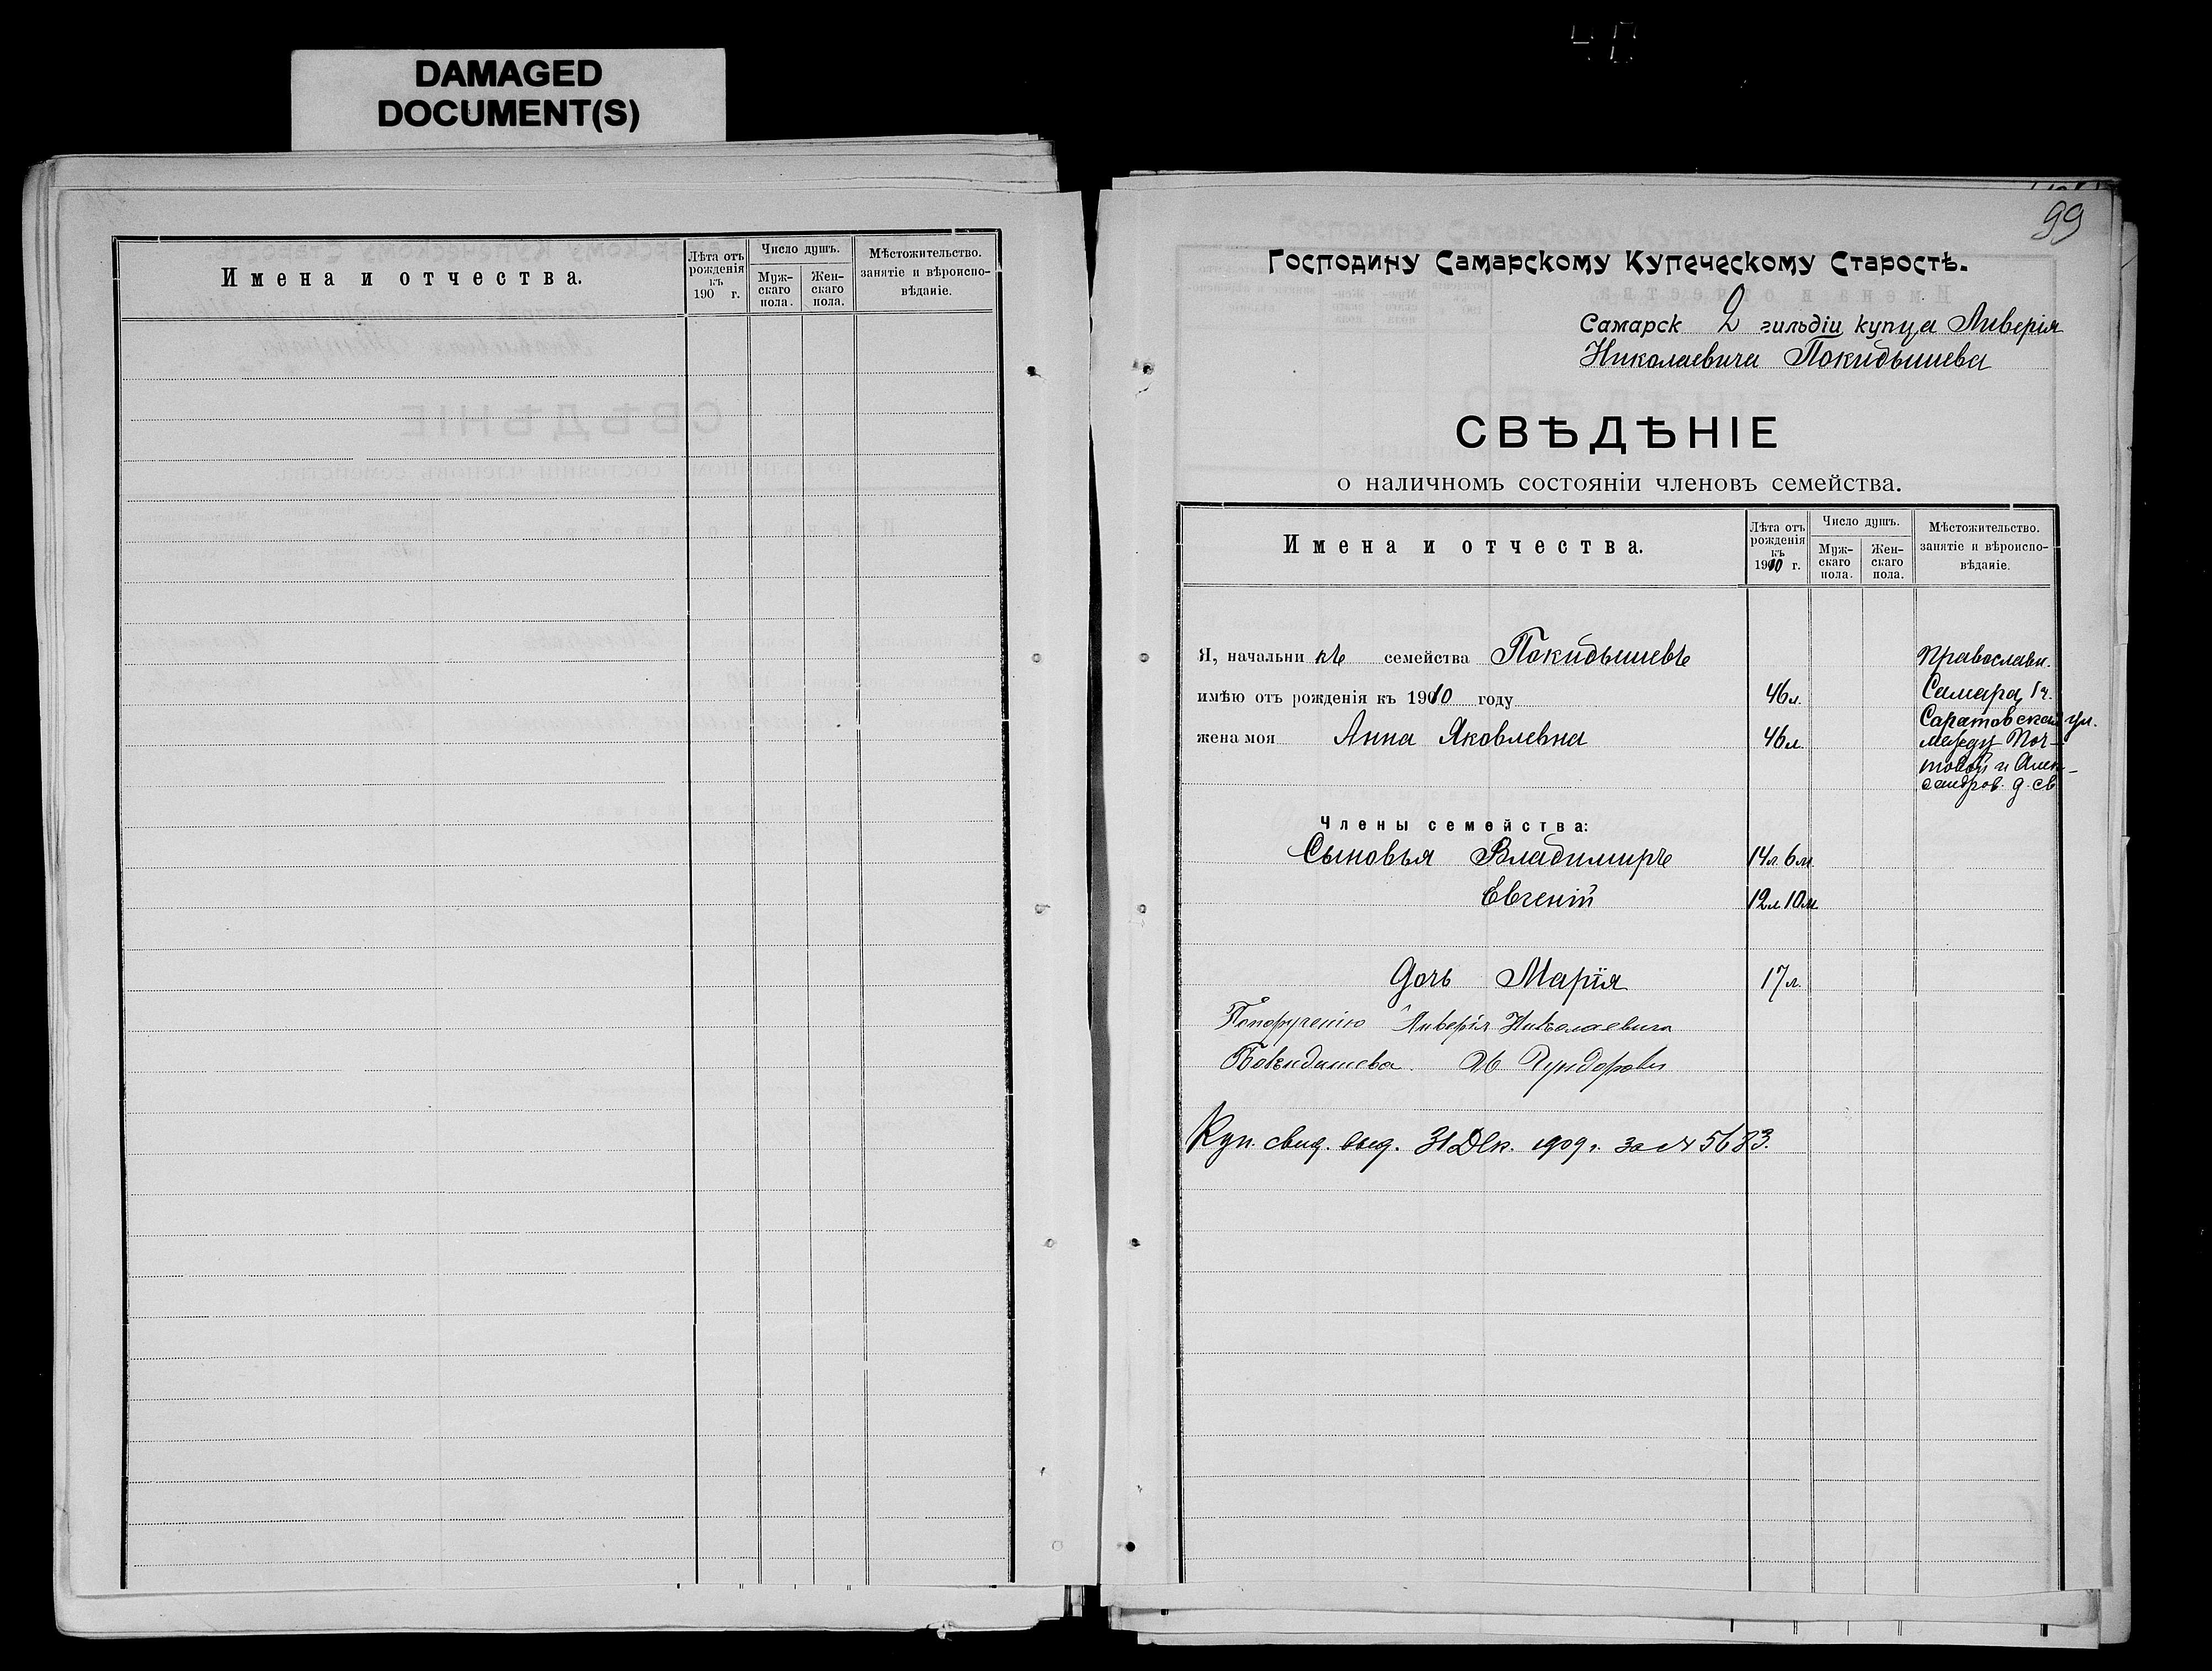 DAMAGED
DOCUMENT(S)
Имена и отчества.
Лѣта отъ рожденія къ 190 г.
Число душъ.
Муж-скаго пола.
Жен-скаго пола.
Мѣстожительство. занятіе и вѣроиспо-вѣданіе.
99
Господину Самарскому Купеческому Старостѣ.
Самарск 2 гильдіи купца Ливерія
Николаевича Покидышева
СВѢДѢНІЕ
о наличномъ состояніи членовъ семейства.
Имена и отчества.
Лѣта отъ рожденія къ 1910 г.
Число душъ.
Муж-скаго пола.
Жен-скаго пола.
Мѣстожительство. занятіе и вѣроиспо-вѣданіе.
Я, начальникъ семейства Покидышевъ
Православн.
имѣю отъ рожденія къ 1910 году 46 л.
Самара, 1 ч.
Саратовская ул.
жена моя Анна Яковлевна 46 л.
между Поч-
товой и Алек-
сандров. д. св
Члены семейства:
Сыновья Владимиръ 14 л. 6 м
Евгеній 12 л 10 м
Дочь Марія 17 л.
Попорученію Ливерія Николаевича
Покидышева.
Куп. свид. выд. 31 Дек. 1909 г. за № 5683.